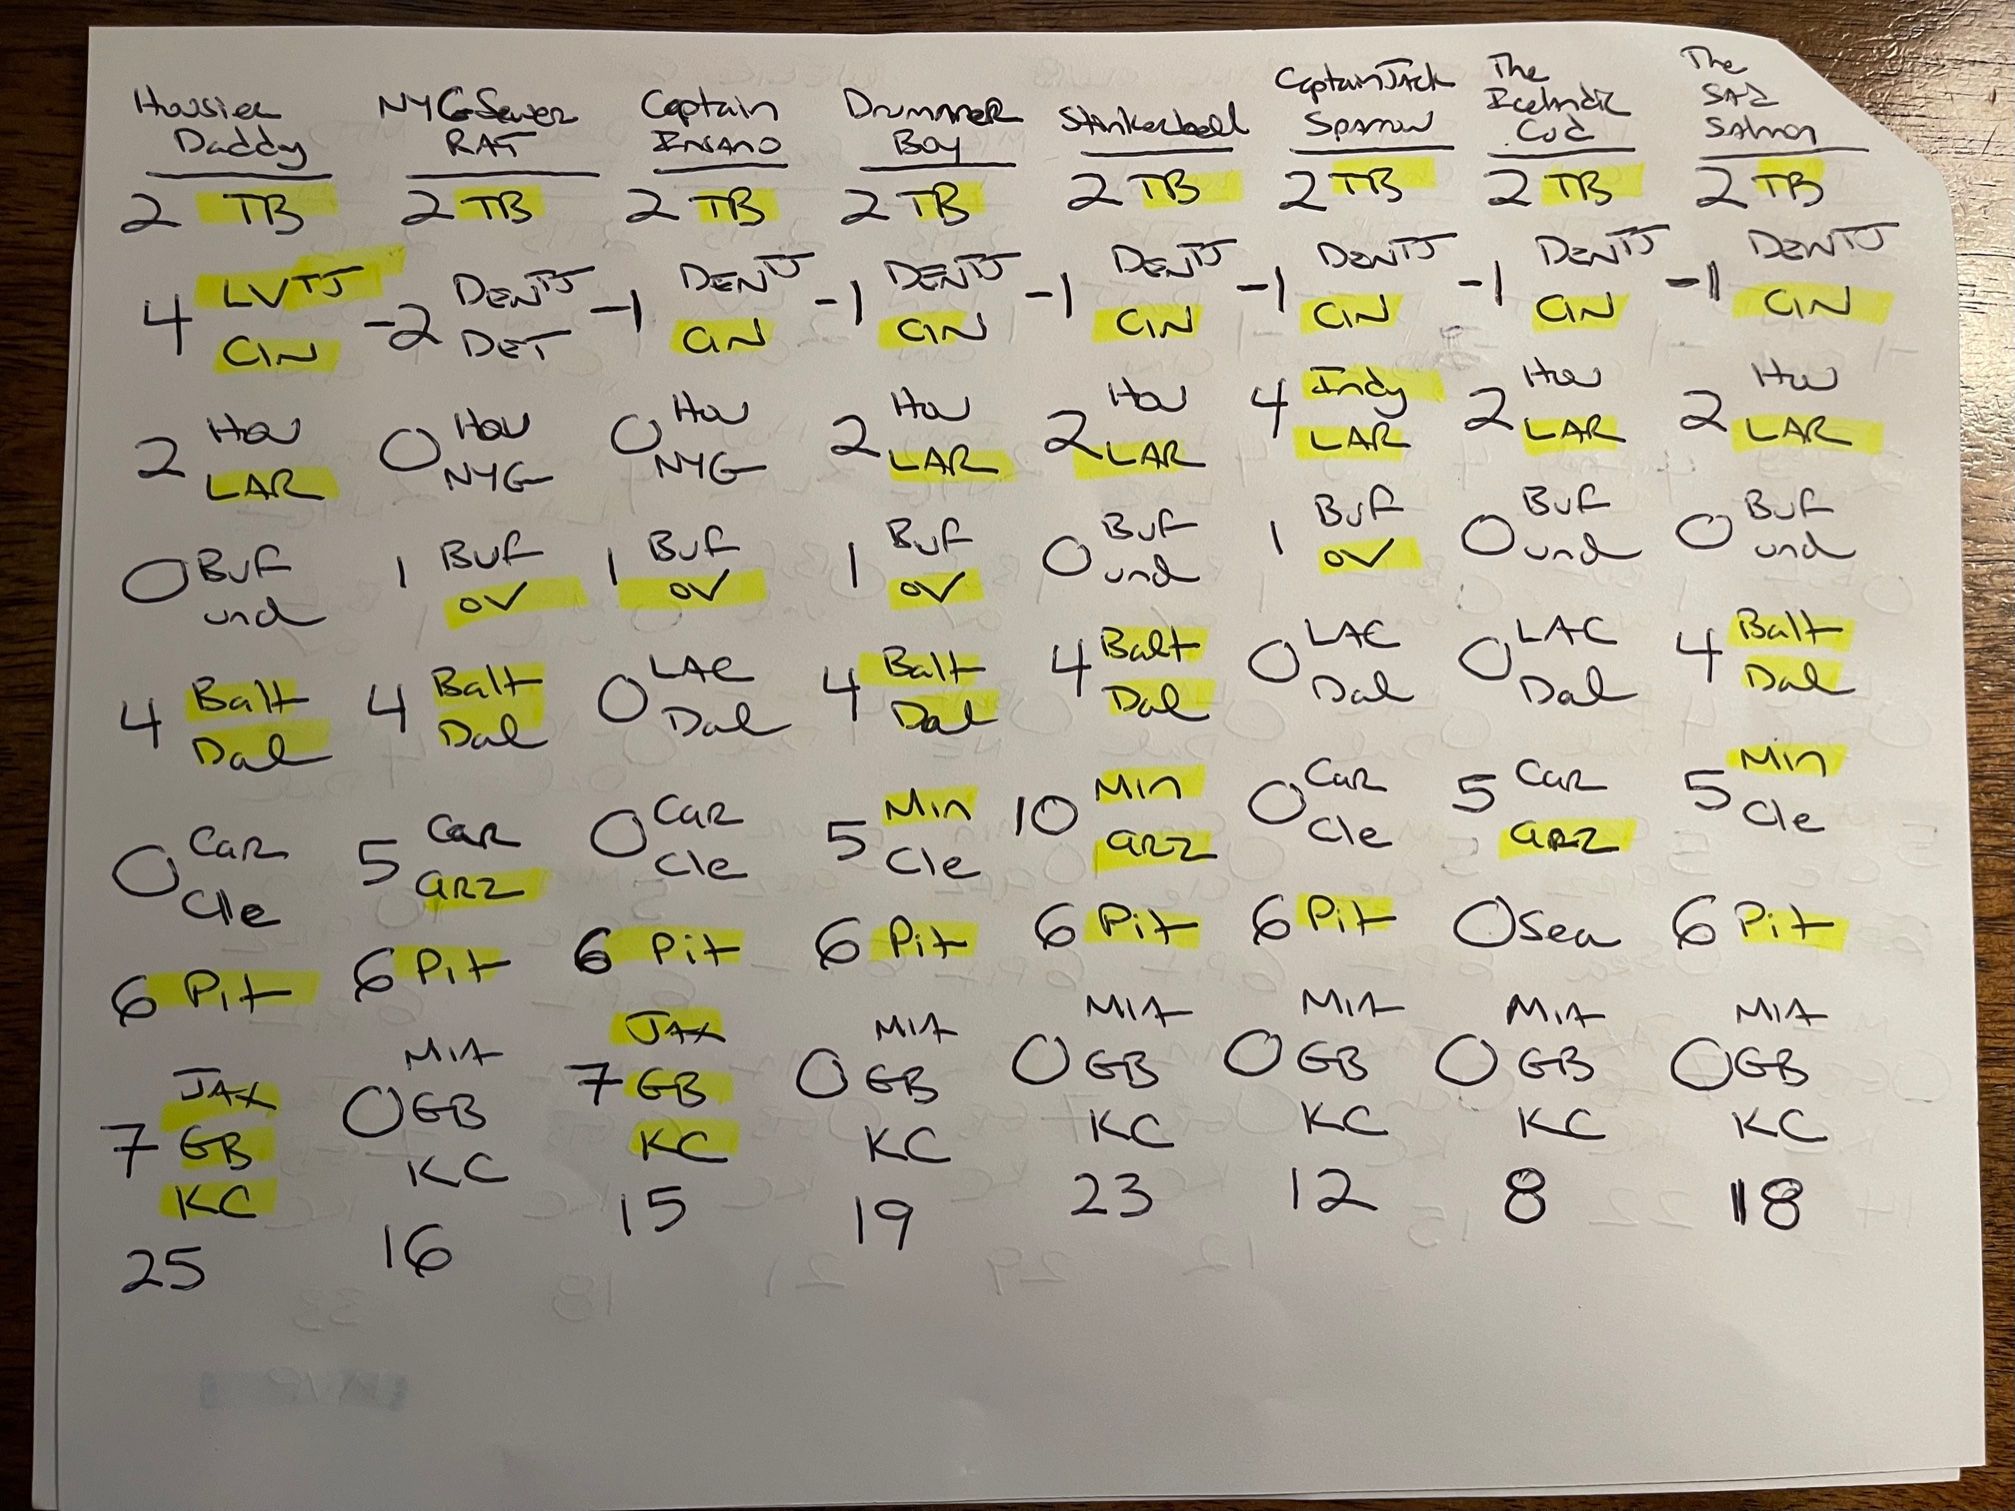 Housier Daddy
2 TB
4 LV TJ
CIN
2 Hou
LAR
0 Buf
und
4 Balt
Dal
0 Car
Cle
6 Pit
7 JAX
GB
KC
25
NYG Sewer RAT
2 TB
-2 DEN TJ
DET
0 Hou
NYG
1 Buf
OV
4 Balt
Dal
5 Car
arz
6 Pit
0 MIA
GB
KC
16
Captain Insano
2 TB
-1 DEN TJ
CIN
0 Hou
NYG
1 Buf
OV
0 LAC
Dal
0 Car
Cle
6 Pit
7 JAX
GB
KC
15
Drummer Boy
2 TB
-1 DEN TJ
CIN
2 Hou
LAR
1 Buf
OV
4 Balt
Dal
5 Min
Cle
6 Pit
0 MIA
GB
KC
19
Stinkerbell
2 TB
-1 DEN TJ
CIN
2 Hou
LAR
0 Buf
und
4 Balt
Dal
10 Min
arz
6 Pit
0 MIA
GB
KC
23
Captain Jack Sparrow
2 TB
-1 DEN TJ
CIN
4 Indy
LAR
1 Buf
OV
0 LAC
Dal
0 Car
Cle
6 Pit
0 MIA
GB
KC
12
The Icelandic Cod
2 TB
-1 DEN TJ
CIN
2 Hou
LAR
0 Buf
und
0 LAC
Dal
5 Car
arz
0 Sea
0 MIA
GB
KC
8
The SAd Salmon
2 TB
-1 DEN TJ
CIN
2 Hou
LAR
0 Buf
und
4 Balt
Dal
5 Min
Cle
6 Pit
0 MIA
GB
KC
18